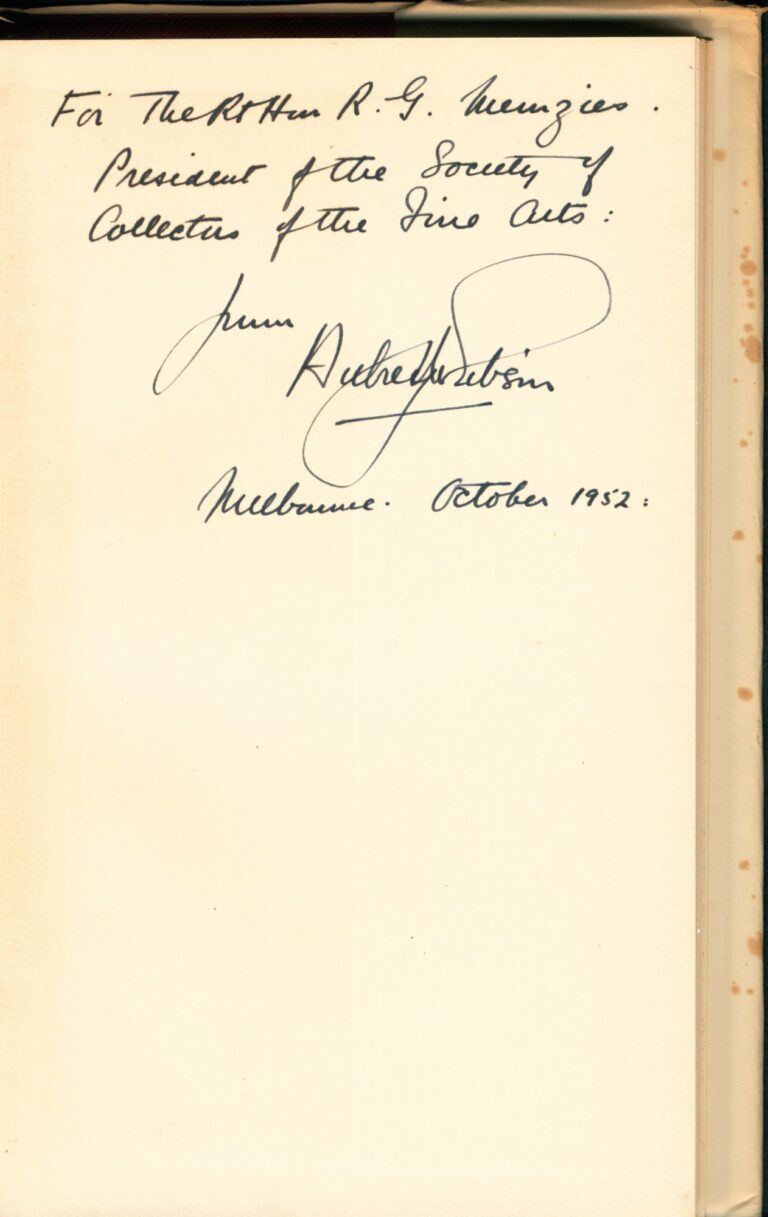 For The Rt Hon R. G. Menzies.
President of the Society of
Collectors of the Fine Arts:
from
Aubrey Gibson
Melbourne. October 1952: